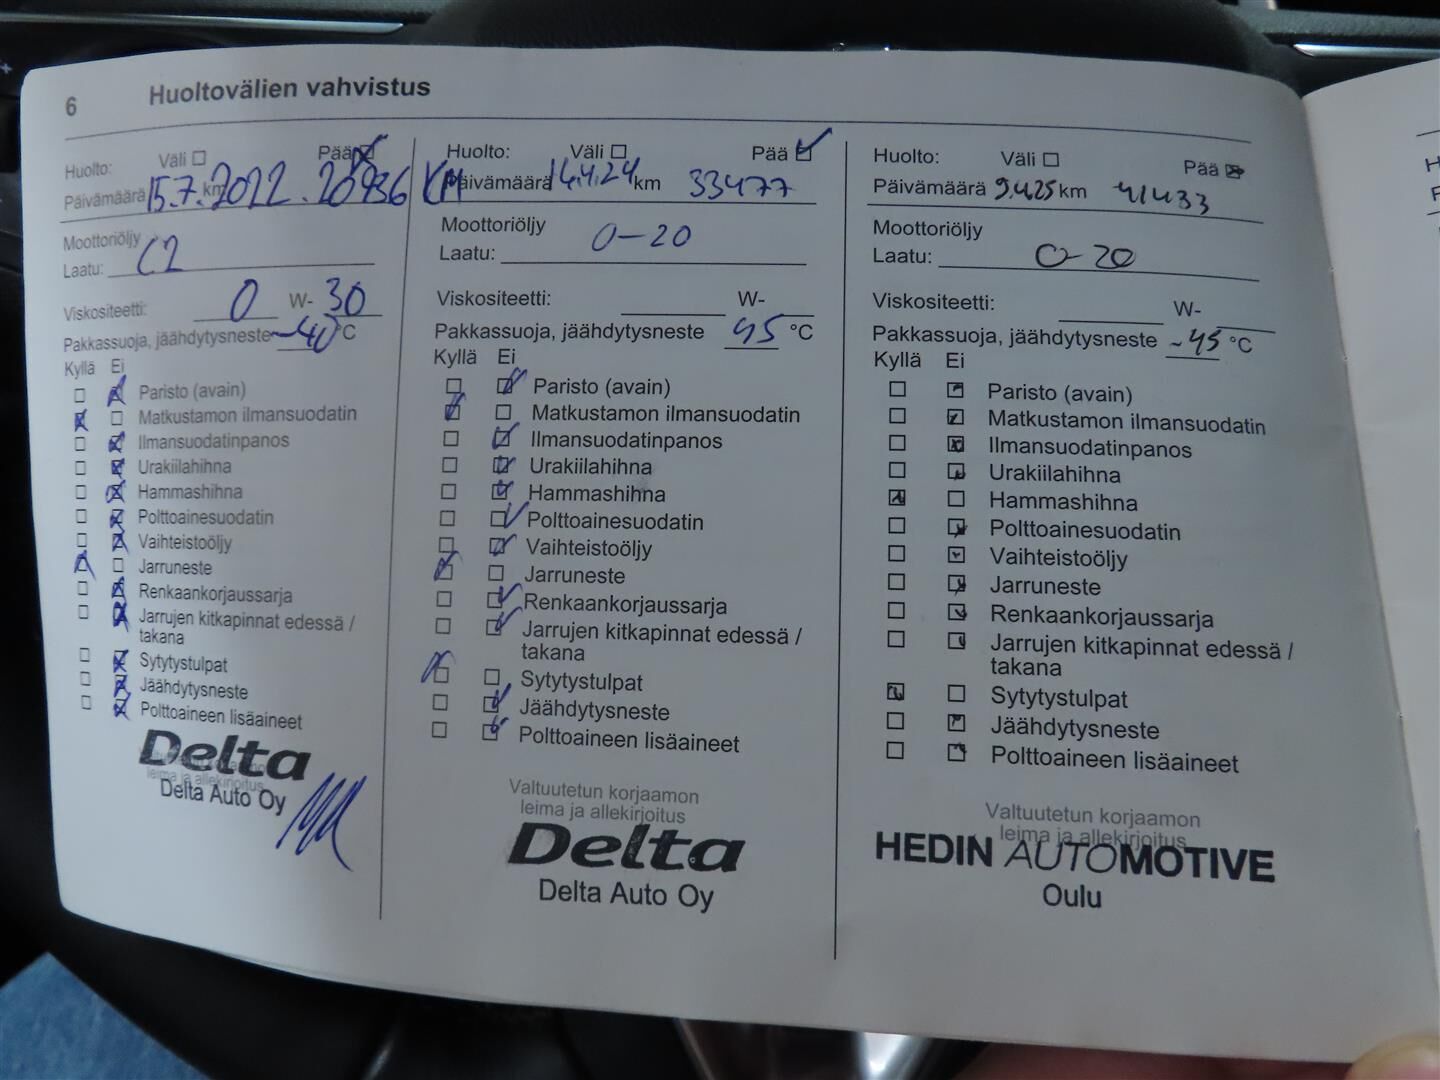 6 Huoltovälien vahvistus
Huolto: Väli Pää
Päivämäärä 15.7.2022 km 20936 KM
Moottoriöljy
Laatu: C2
Viskositeetti: 0 W- 30
Pakkassuoja, jäähdytysneste -40 °C
Kyllä Ei
Paristo (avain)
Matkustamon ilmansuodatin
Ilmansuodatinpanos
Urakiilahihna
Hammashihna
Polttoainesuodatin
Vaihteistoöljy
Jarruneste
Renkaankorjaussarja
Jarrujen kitkapinnat edessä /
takana
Sytytystulpat
Jäähdytysneste
Polttoaineen lisäaineet
Delta
leima ja allekirjoitus
Delta Auto Oy
Huolto: Väli Pää
Päivämäärä 14.4.24 km 33477
Moottoriöljy
Laatu: 0-20
Viskositeetti: W-
Pakkassuoja, jäähdytysneste 45 °C
Kyllä Ei
Paristo (avain)
Matkustamon ilmansuodatin
Ilmansuodatinpanos
Urakiilahihna
Hammashihna
Polttoainesuodatin
Vaihteistoöljy
Jarruneste
Renkaankorjaussarja
Jarrujen kitkapinnat edessä /
takana
Sytytystulpat
Jäähdytysneste
Polttoaineen lisäaineet
Valtuutetun korjaamon
leima ja allekirjoitus
Delta
Delta Auto Oy
Huolto: Väli Pää
Päivämäärä 9.4.25 km 41433
Moottoriöljy
Laatu: 0-20
Viskositeetti: W-
Pakkassuoja, jäähdytysneste -45 °C
Kyllä Ei
Paristo (avain)
Matkustamon ilmansuodatin
Ilmansuodatinpanos
Urakiilahihna
Hammashihna
Polttoainesuodatin
Vaihteistoöljy
Jarruneste
Renkaankorjaussarja
Jarrujen kitkapinnat edessä /
takana
Sytytystulpat
Jäähdytysneste
Polttoaineen lisäaineet
Valtuutetun korjaamon
leima ja allekirjoitus
HEDIN AUTOMOTIVE
Oulu